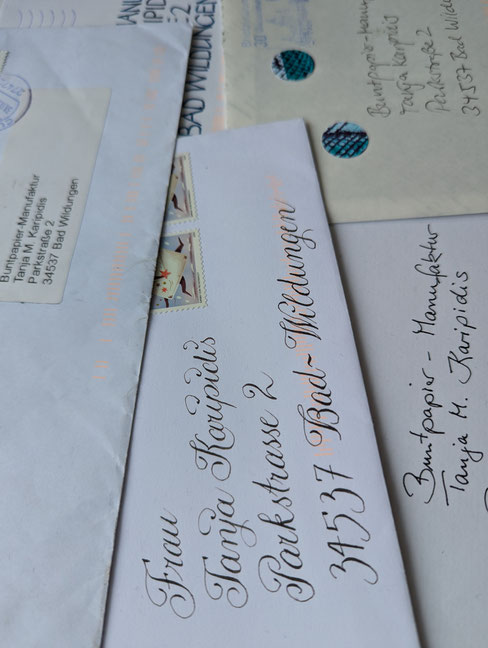 BAD WILDUNGEN
Buntpapier-Manufaktur
Tanja M. Karipidis
Parkstraße 2
34537 Bad Wildungen
Frau
Tanja Karipidis
Parkstrasse 2
34537 Bad~Wildungen
Buntpapier-Manu
Tanja Karipidis
Parkstraße 2
34537 Bad Wild
Buntpapier - Manufaktur
Tanja M. Karipidis